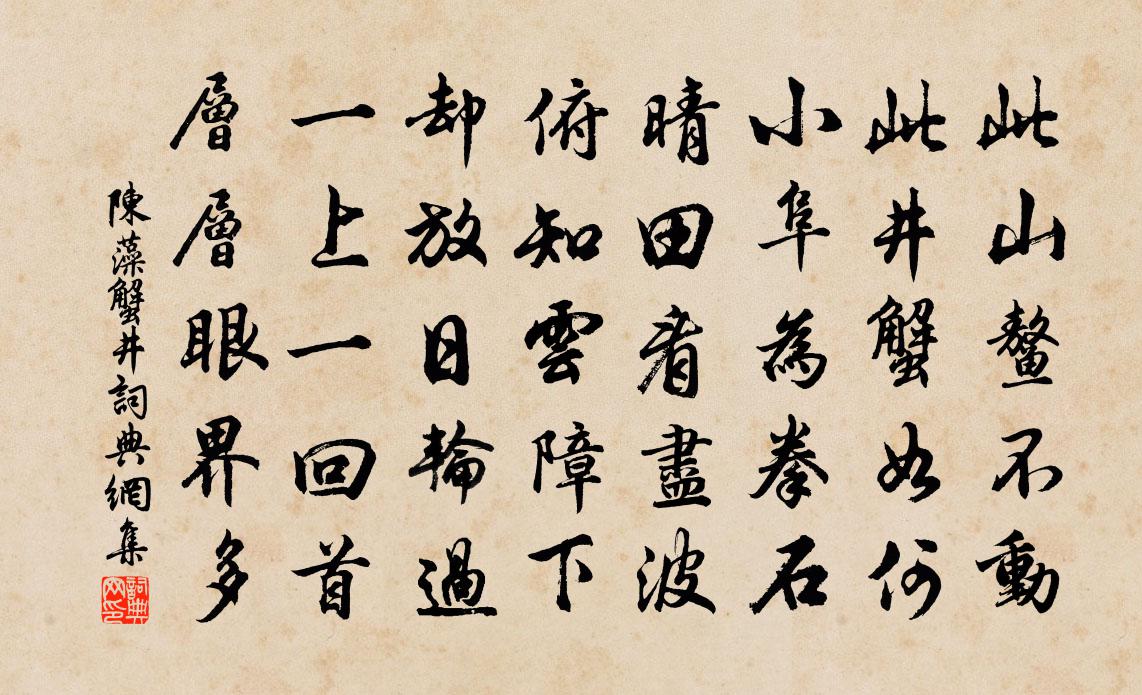 此山鰲不動
此井蟹如何
小阜為拳石
晴田看盡波
俯知雲障下
却放日輪過
一上一回首
層層眼界多
陳藻蟹井詞典網集
詞典網印